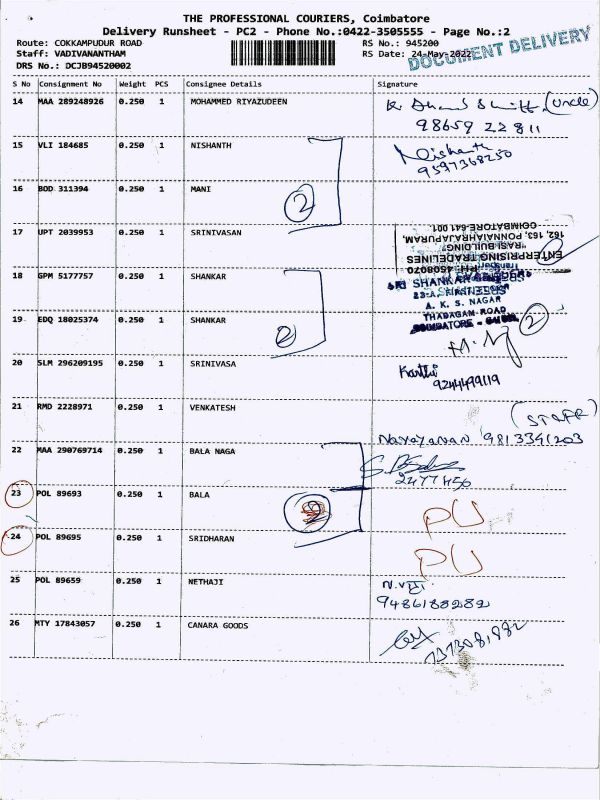 THE PROFESSIONAL COURIERS, Coimbatore
Delivery Runsheet - PC2 - Phone No.:0422-3505555 - Page No.:2
Route: COKKAMPUDUR ROAD RS No.: 945200
Staff: VADIVANANTHAM RS Date: 24-May-2022
DRS No.: DCJB94520002
DOCUMENT DELIVERY
S No Consignment No Weight PCS Consignee Details Signature
14 MAA 289248926 0.250 1 MOHAMMED RIYAZUDEEN (uncle)
98659 22811
15 VLI 184685 0.250 1 NISHANTH Nishanth
9597368250
16 BOD 311394 0.250 1 MANI
2
17 UPT 2039953 0.250 1 SRINIVASAN
ENTERPRISING TRADELINES
"RASI BUILDING"
162, 163, PONNAIAHRAJAPURAM,
COIMBATORE-641 001
18 GPM 5177757 0.250 1 SHANKAR SRI SHANKAR
A. K. S. NAGAR
THADAGAM ROAD
19 EDQ 18025374 0.250 1 SHANKAR COIMBATORE
2 2
20 SLM 296209195 0.250 1 SRINIVASA Karthi
9244499119
21 RMD 2228971 0.250 1 VENKATESH (STAFF)
Narayanan 9813341203
22 MAA 290769714 0.250 1 BALA NAGA
2477456
23 POL 89693 0.250 1 BALA PU
24 POL 89695 0.250 1 SRIDHARAN PU
25 POL 89659 0.250 1 NETHAJI
9486188282
26 MTY 17843057 0.250 1 CANARA GOODS
737308,882